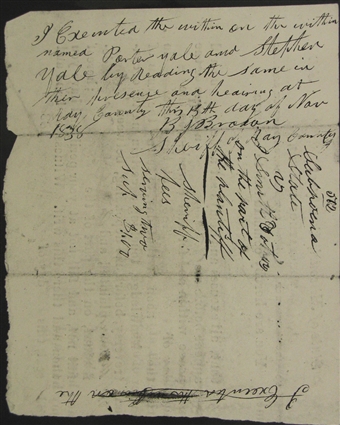 I Executed the within on the within
named Porter yale and Stephen
Yale by Reading the same in
their presence and hearing at
Ray County this 13th day of Nov
1838
B J Brown
Sheriff Ray County
312
Subpoena
State
vs
J Smith
on the part of
the plaintiff
Sheriff
fees
serving two
sub
I Executed the within on the